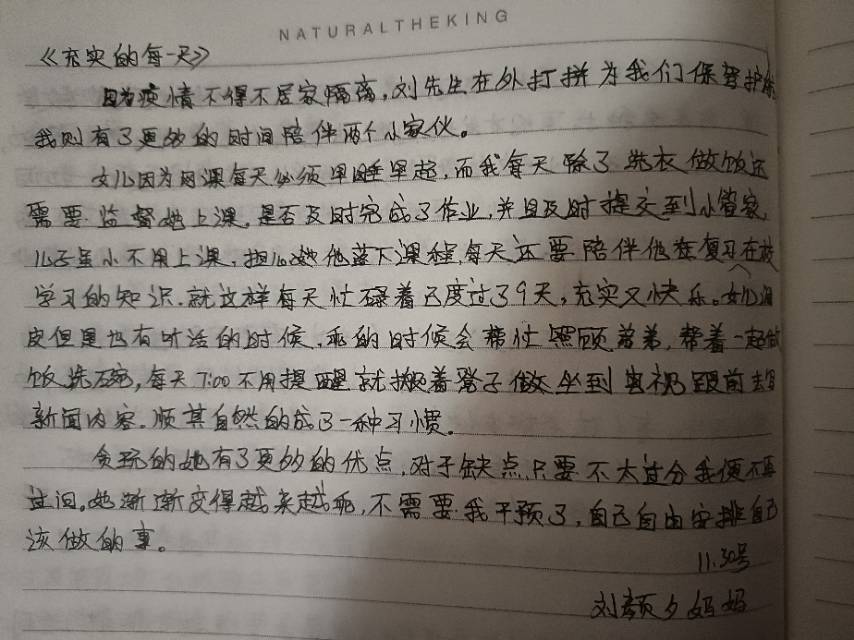 NATURALTHEKING
《充实的每一天》
因为疫情不得不居家隔离,刘先生在外打拼为我们保驾护航
我则有了更多的时间陪伴两个小家伙。
女儿因为网课每天必须早睡早起,而我每天除了洗衣做饭还
需要监督她上课,是否及时完成了作业,并且及时提交到小管家
儿子虽小不用上课,担心他落下课程,每天还要陪伴他在复习在校
学习的知识.就这样每天忙碌着已度过了9天,充实又快乐。女儿调
皮但是也有听话的时候,乖的时候会帮忙照顾弟弟,帮着一起做
饭洗碗,每天7:00不用提醒就搬着凳子做坐到电视跟前去写
新闻内容.顺其自然的成了一种习惯。
贪玩的她有了更多的优点,对于缺点只要不太过分我便不再
过问。她渐渐变得越来越乖,不需要我干预了,自己自由安排自己
该做的事。
11.30号
刘颜夕妈妈